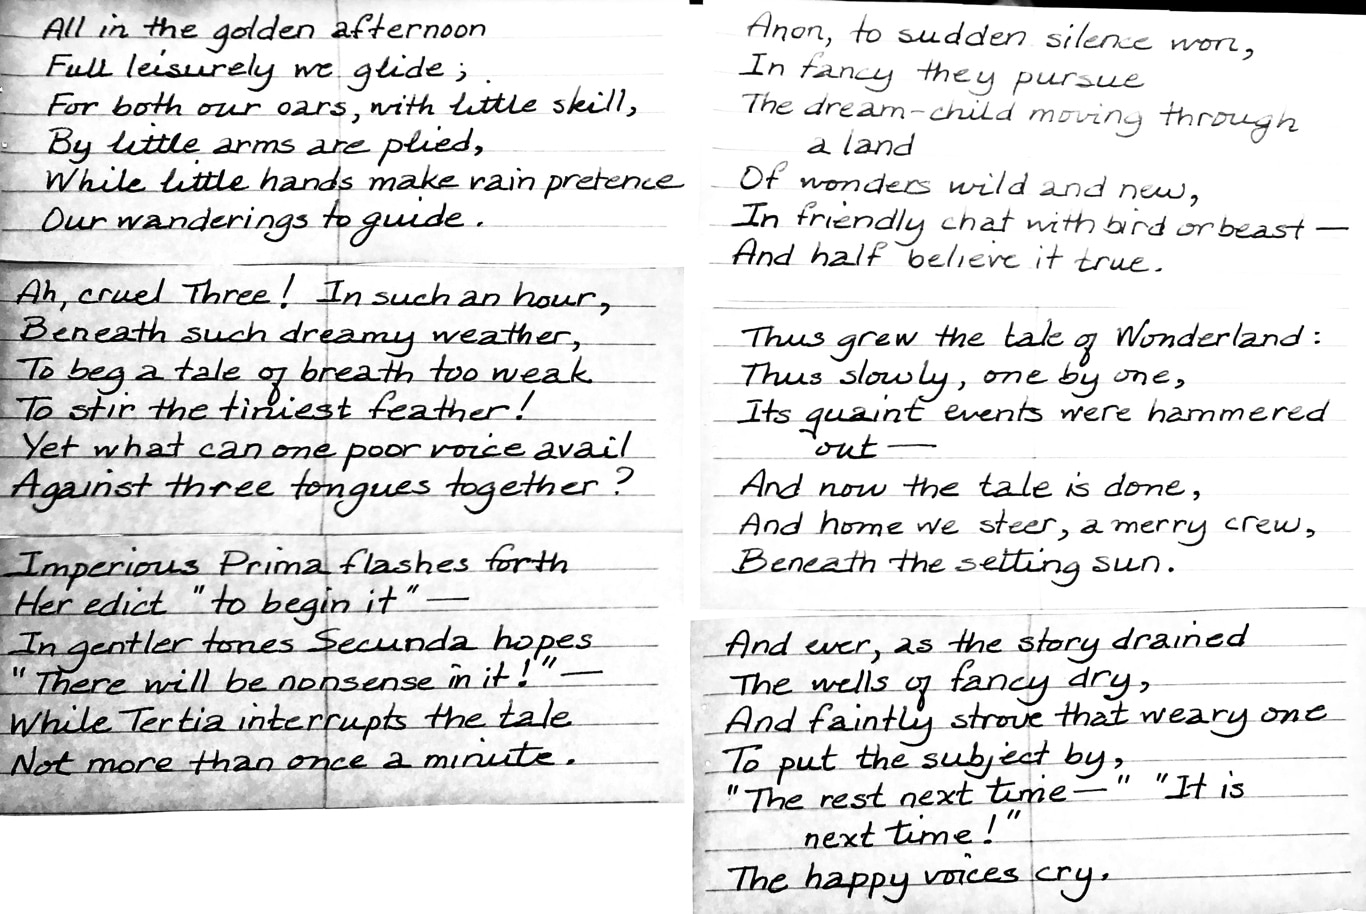 All in the golden afternoon
Full leisurely we glide;
For both our oars, with little skill,
By little arms are plied,
While little hands make rain pretence
Our wanderings to guide.
Ah, cruel Three! In such an hour,
Beneath such dreamy weather,
To beg a tale of breath too weak
To stir the tiniest feather!
Yet what can one poor voice avail
Against three tongues together?
Imperious Prima flashes forth
Her edict "to begin it" —
In gentler tones Secunda hopes
"There will be nonsense in it!" —
While Tertia interrupts the tale
Not more than once a minute.
Anon, to sudden silence won,
In fancy they pursue
The dream-child moving through
a land
Of wonders wild and new,
In friendly chat with bird or beast —
And half believe it true.
Thus grew the tale of Wonderland:
Thus slowly, one by one,
Its quaint events were hammered
out —
And now the tale is done,
And home we steer, a merry crew,
Beneath the setting sun.
And ever, as the story drained
The wells of fancy dry,
And faintly strove that weary one
To put the subject by,
"The rest next time —" "It is
next time!"
The happy voices cry.